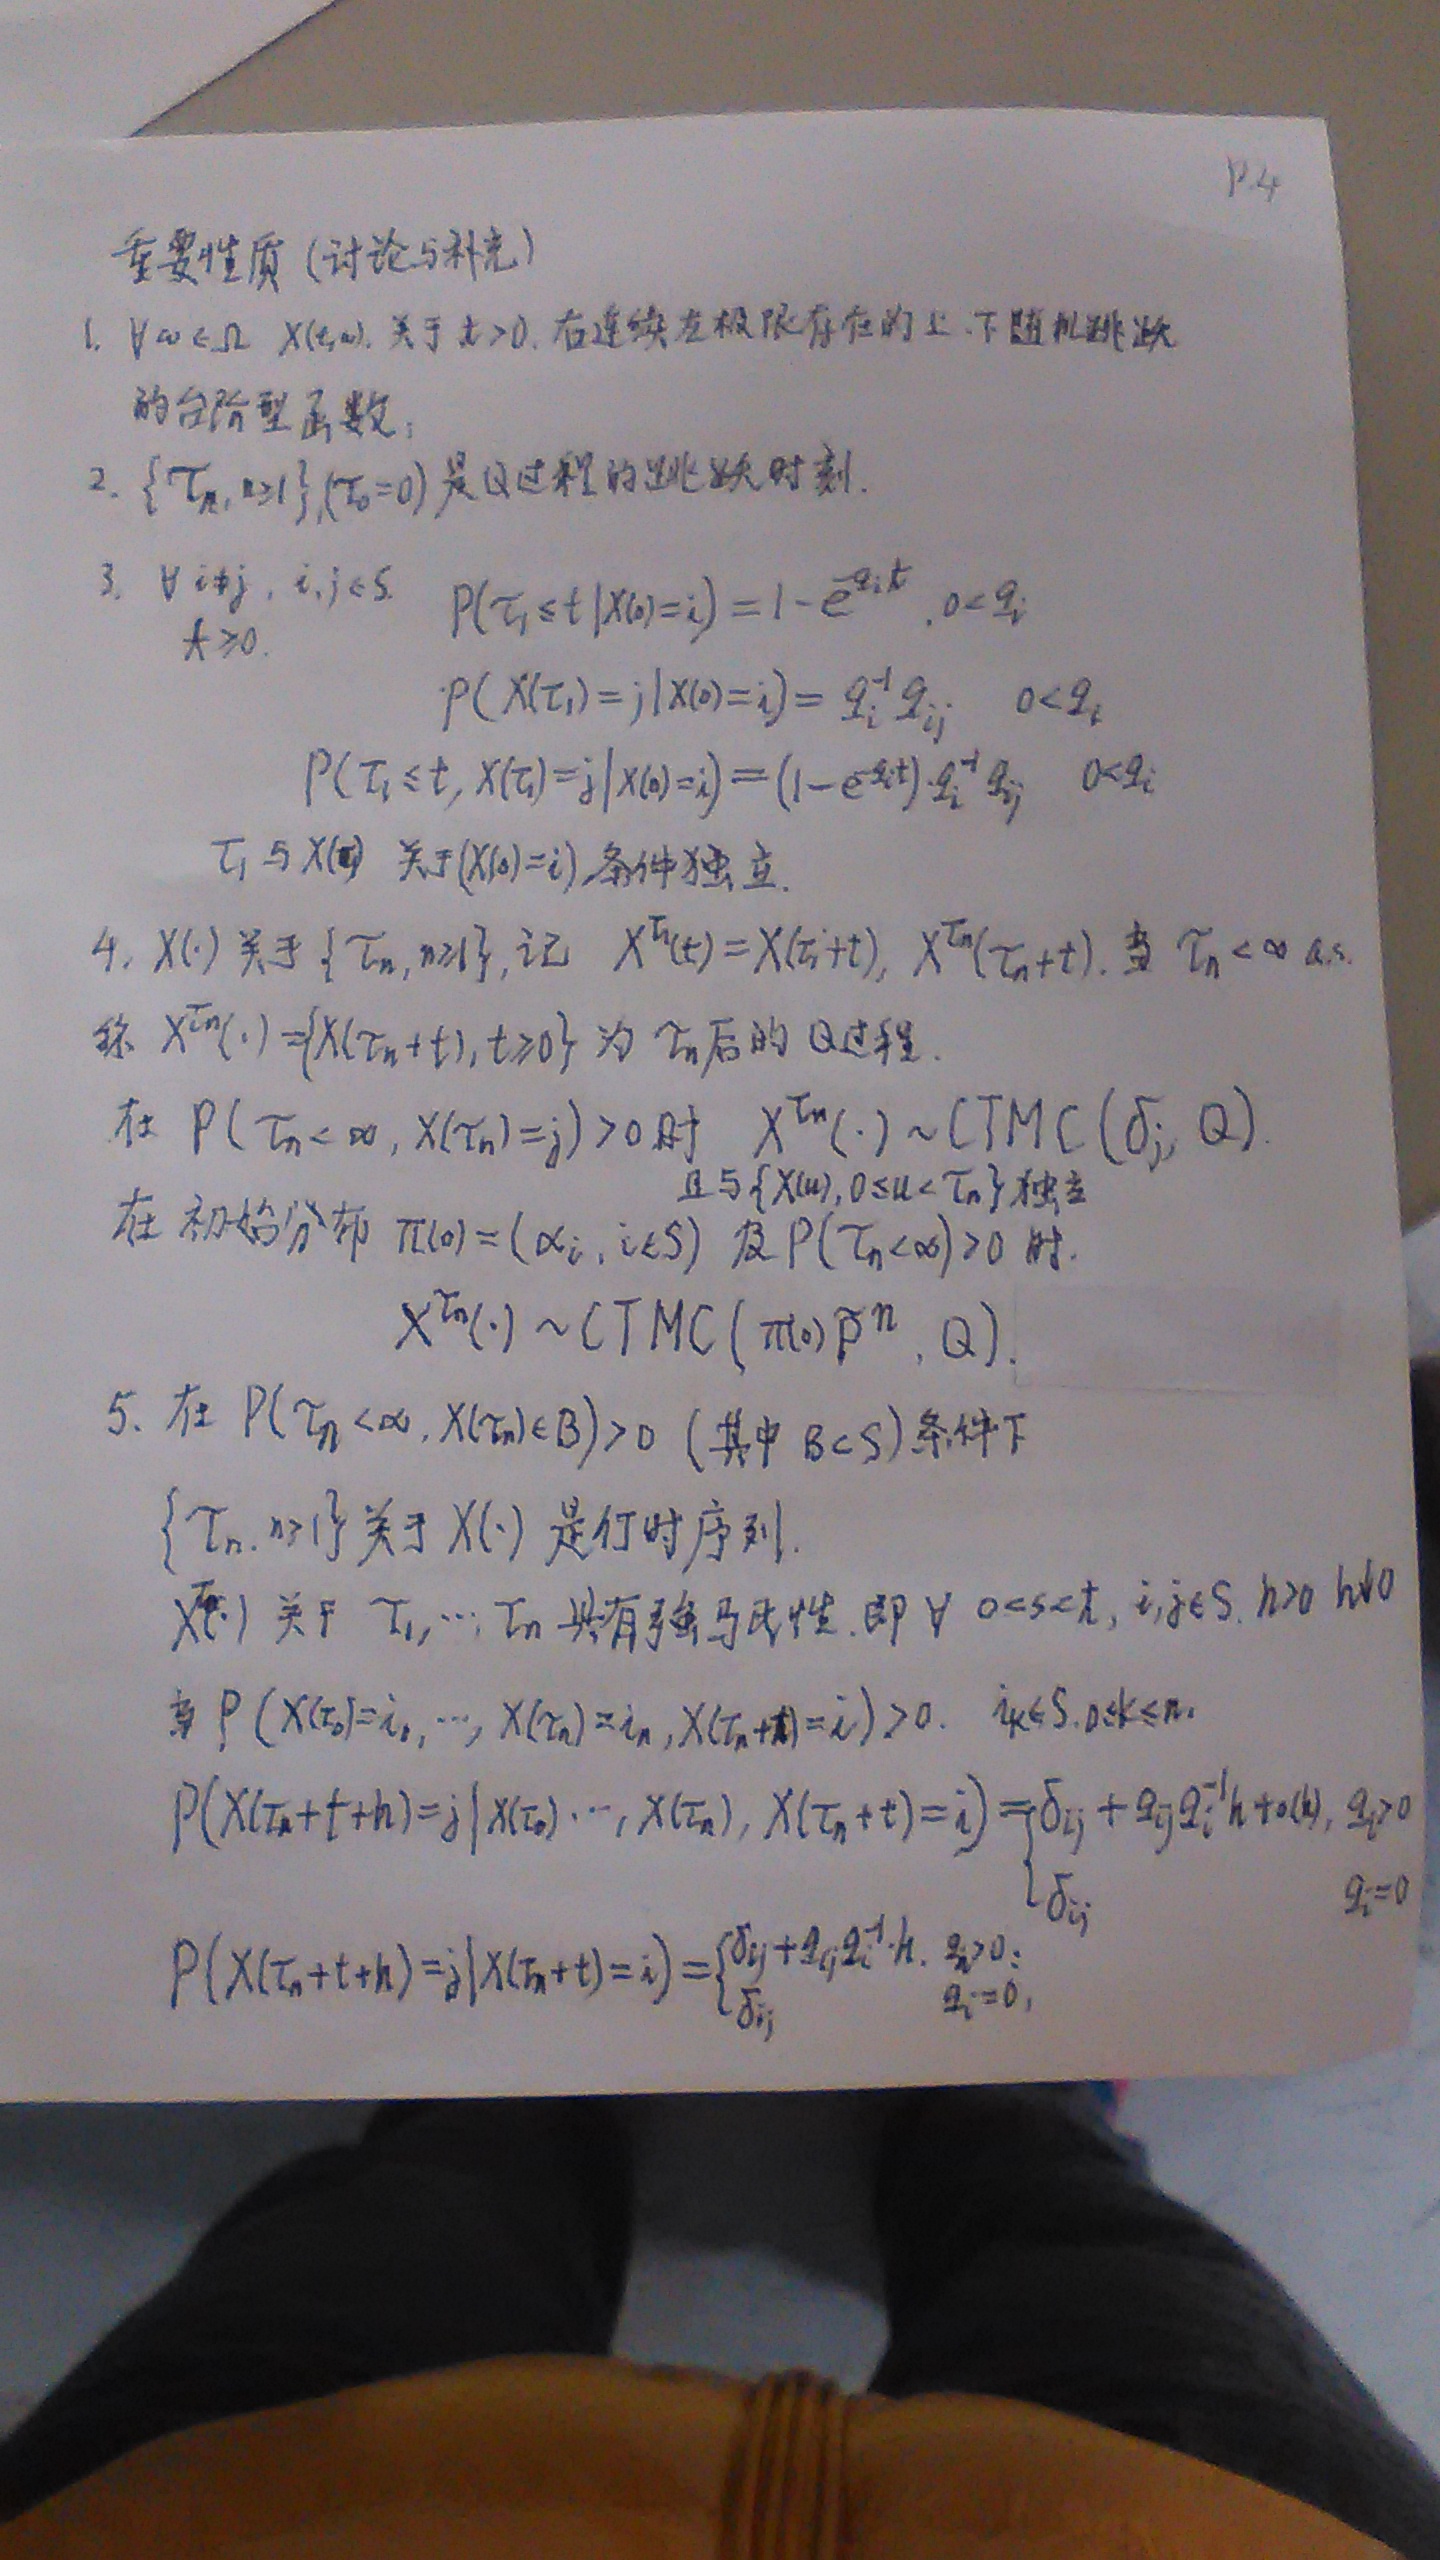 P.4
重要性质(讨论与补充)
1. ∀ω∈Ω X(t,ω). 关于 t>0. 右连续左极限存在的上.下随机跳跃
的台阶型函数;
2. {τₙ, n≥1},(τ₀=0) 是Q过程的跳跃时刻.
3. ∀ i≠j, i,j∈S. P(τ₁≤t|X(0)=i)=1-e^{-qᵢt}, 0<qᵢ
t≥0.
P(X(τ₁)=j|X(0)=i)= qᵢ⁻¹qᵢⱼ 0<qᵢ
P(τ₁≤t, X(τ₁)=j|X(0)=i)=(1-e^{-qᵢt})·qᵢ⁻¹qᵢⱼ 0<qᵢ
τ₁与X(τ₁) 关于(X(0)=i)条件独立.
4. X(·)关于{τₙ,n≥1},记 X^{τ₁}(t)=X(τ₁+t), X^{τₙ}(τₙ+t). 当 τₙ<∞ a.s.
称 X^{τₙ}(·)={X(τₙ+t),t≥0}为 τₙ后的Q过程.
在 P(τₙ<∞, X(τₙ)=j)>0时 X^{τₙ}(·)~CTMC(δⱼ, Q).
且与{X(u),0≤u<τₙ}独立
在初始分布 π(0)=(αᵢ, i∈S) 及P(τₙ<∞)>0 时.
X^{τₙ}(·)~CTMC(π(0)P̃ⁿ, Q).
5. 在 P(τₙ<∞, X(τₙ)∈B)>0 (其中 B⊂S)条件下
{τₙ. n≥1}关于X(·)是停时序列.
X(·) 关于 τ₁,…,τₙ具有强马氏性.即∀ 0<s<t, i,j∈S. h>0 h↓0
当 P(X(τ₀)=i₀,…, X(τₙ)=iₙ, X(τₙ+t)=i)>0. iₖ∈S.0≤k≤n.
P(X(τₙ+t+h)=j|X(τ₀)…, X(τₙ), X(τₙ+t)=i)={δᵢⱼ+qᵢⱼqᵢ⁻¹h+o(h), qᵢ>0
δᵢⱼ qᵢ=0
P(X(τₙ+t+h)=j|X(τₙ+t)=i)={δᵢⱼ+qᵢⱼqᵢ⁻¹·h. qᵢ>0;
δᵢⱼ qᵢ=0,